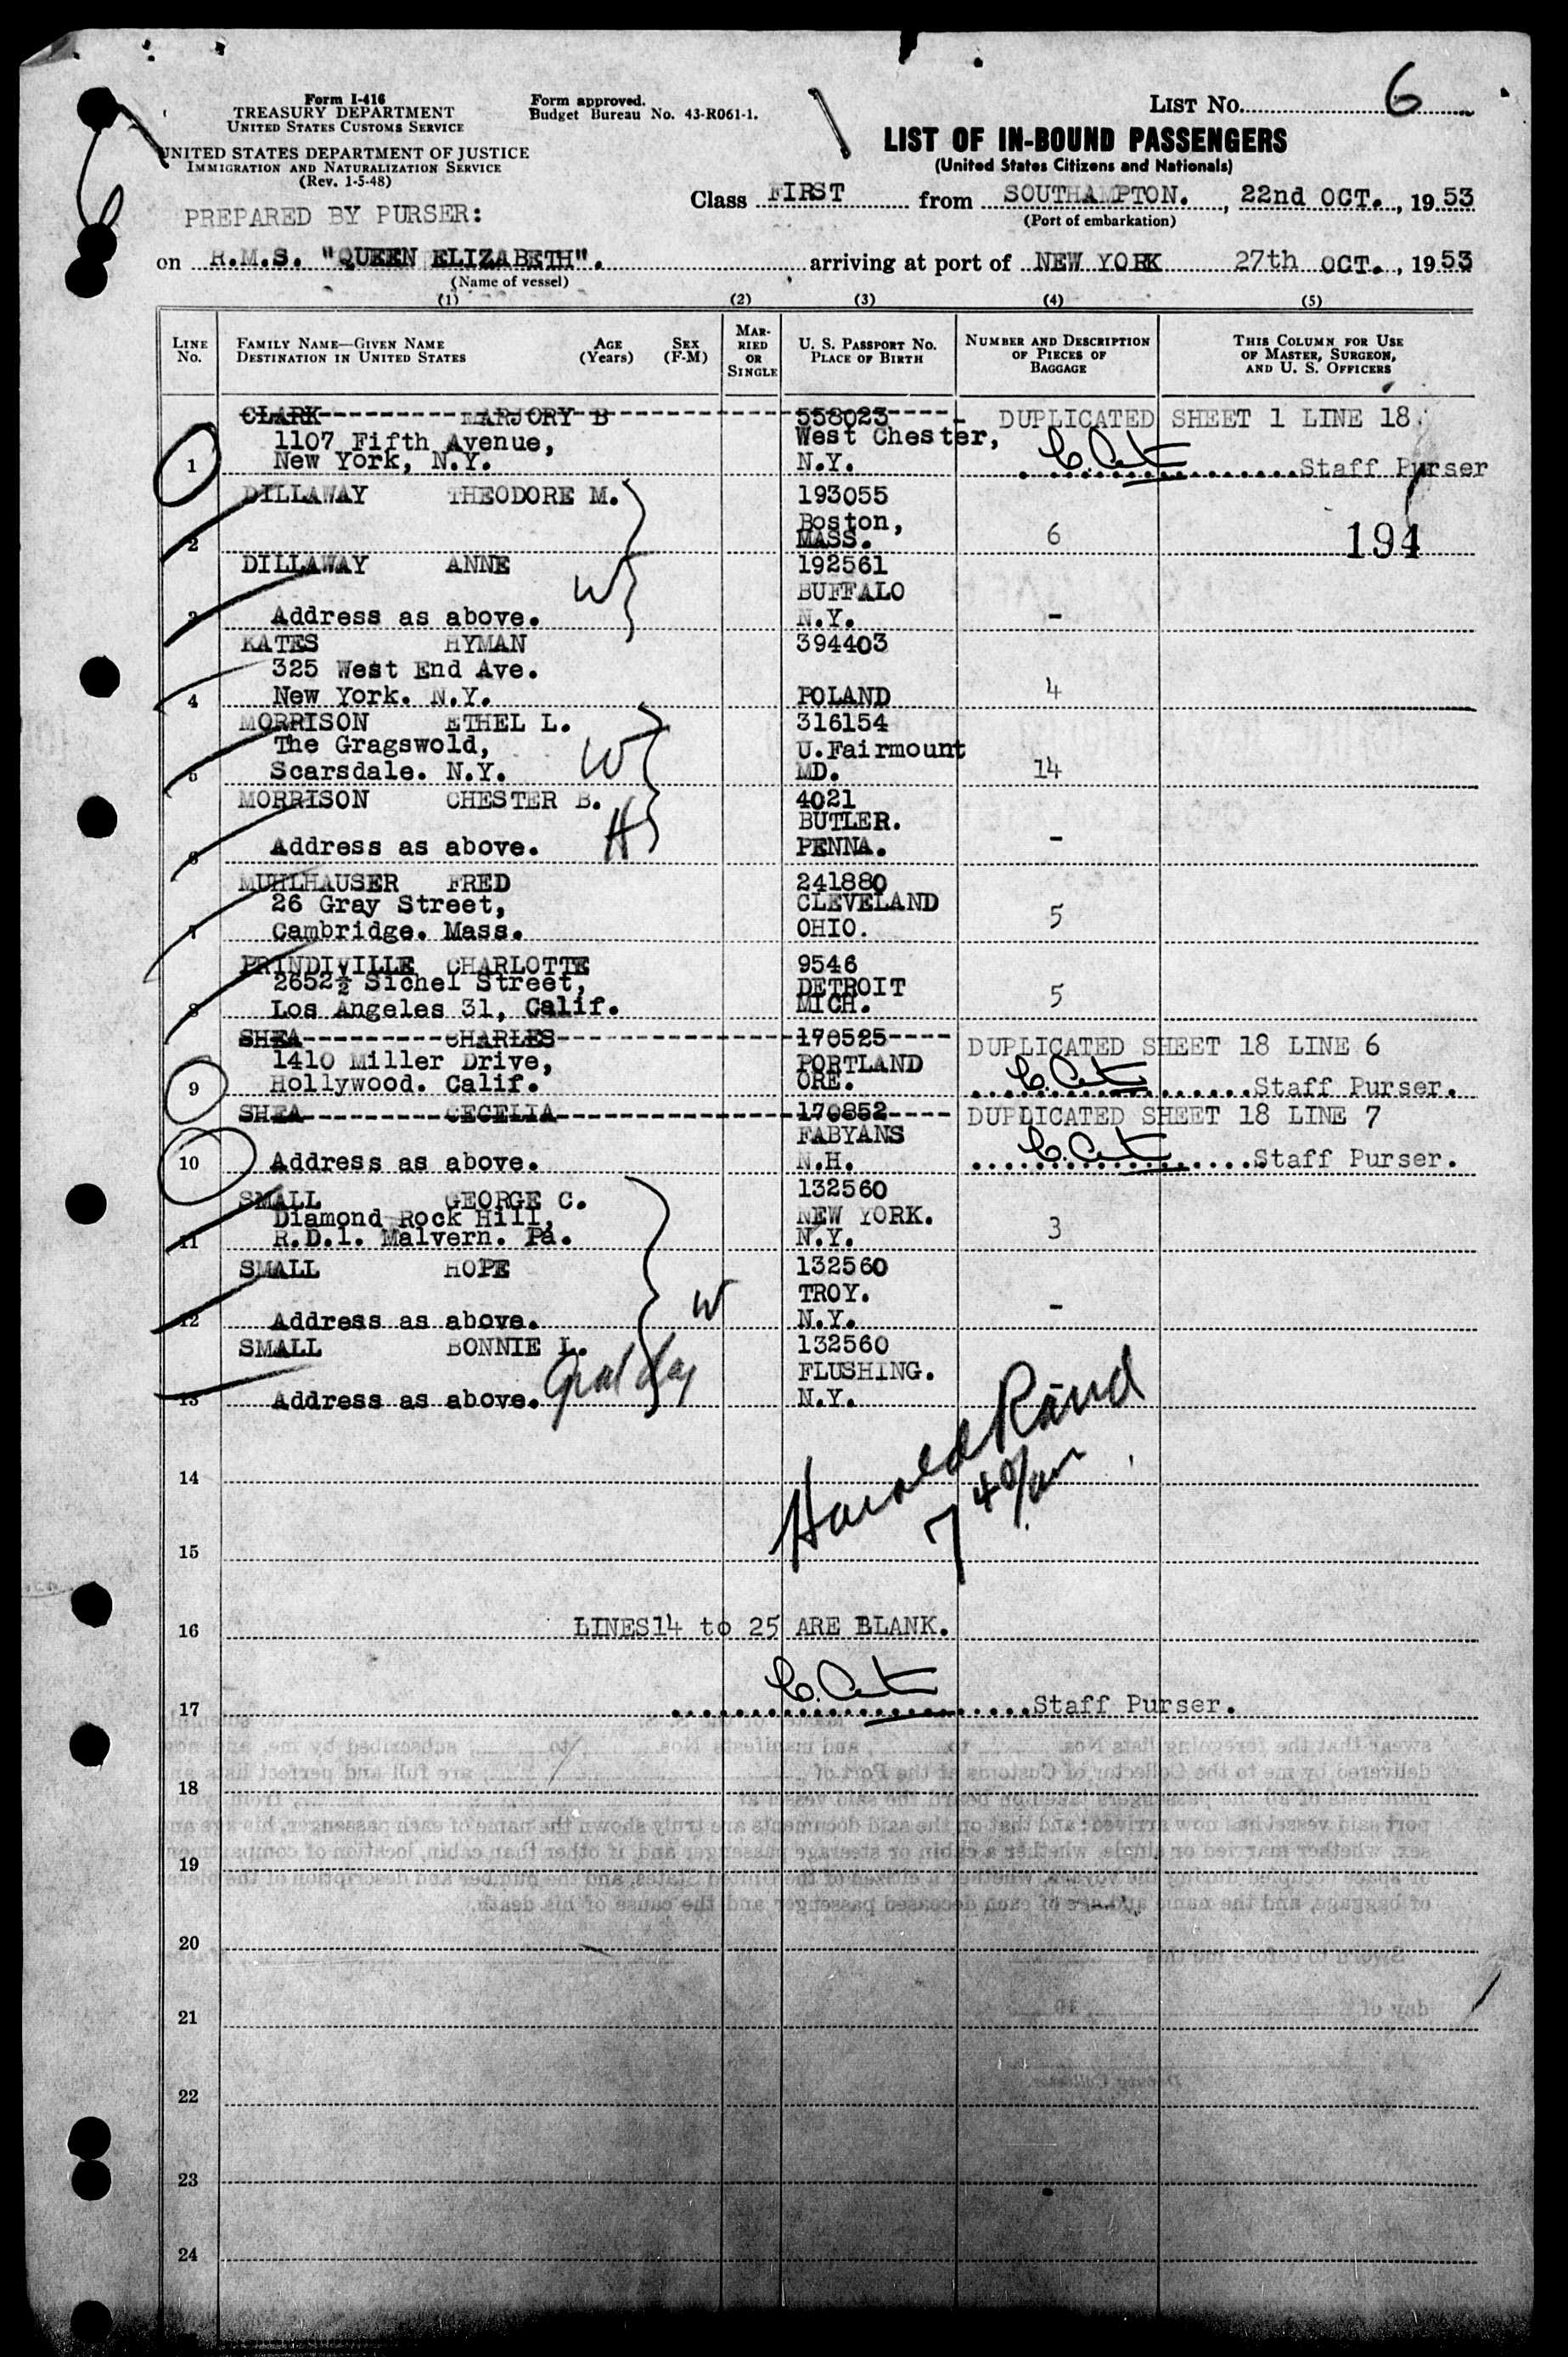 Form I-416
TREASURY DEPARTMENT
UNITED STATES CUSTOMS SERVICE
UNITED STATES DEPARTMENT OF JUSTICE
IMMIGRATION AND NATURALIZATION SERVICE
(Rev. 1-5-48)
Form approved.
Budget Bureau No. 43-R061-1.
LIST NO. 6
LIST OF IN-BOUND PASSENGERS
(United States Citizens and Nationals)
PREPARED BY PURSER:
Class FIRST from SOUTHAMPTON. , 22nd OCT. , 1953
(Port of embarkation)
on R.M.S. "QUEEN ELIZABETH". arriving at port of NEW YORK 27th OCT. , 1953
(Name of vessel)
(1) (2) (3) (4) (5)
LINE No.
FAMILY NAME—GIVEN NAME
DESTINATION IN UNITED STATES
AGE (Years)
SEX (F-M)
MARRIED OR SINGLE
U. S. PASSPORT NO.
PLACE OF BIRTH
NUMBER AND DESCRIPTION OF PIECES OF BAGGAGE
THIS COLUMN FOR USE OF MASTER, SURGEON, AND U. S. OFFICERS
CLARK MARJORY B 558023 - DUPLICATED SHEET 1 LINE 18.
1107 Fifth Avenue, West Chester,
1 New York, N.Y. N.Y. Staff Purser
DILLAWAY THEODORE M. 193055
Boston,
2 MASS. 6 194
DILLAWAY ANNE W 192561
BUFFALO
3 Address as above. N.Y. -
KATES HYMAN 394403
325 West End Ave.
4 New York. N.Y. POLAND 4
MORRISON ETHEL L. 316154
The Gragswold, W U.Fairmount
5 Scarsdale. N.Y. MD. 14
MORRISON CHESTER B. 4021
H BUTLER.
6 Address as above. PENNA. -
MUHLHAUSER FRED 241880
26 Gray Street, CLEVELAND
7 Cambridge. Mass. OHIO. 5
PRINDIVILLE CHARLOTTE 9546
2652½ Sichel Street, DETROIT
8 Los Angeles 31, Calif. MICH. 5
SHEA CHARLES 170525 DUPLICATED SHEET 18 LINE 6
1410 Miller Drive, PORTLAND
9 Hollywood. Calif. ORE. Staff Purser.
SHEA CECELIA 170852 DUPLICATED SHEET 18 LINE 7
FABYANS
10 Address as above. N.H. Staff Purser.
SMALL GEORGE C. 132560
Diamond Rock Hill, NEW YORK.
11 R.D.1. Malvern. Pa. N.Y. 3
SMALL HOPE 132560
W TROY.
12 Address as above. N.Y. -
SMALL BONNIE L. 132560
FLUSHING.
13 Address as above. N.Y.
Harold Rand
7 40/am
14
15
16 LINES14 to 25 ARE BLANK.
17 Staff Purser.
18
19
20
21
22
23
24